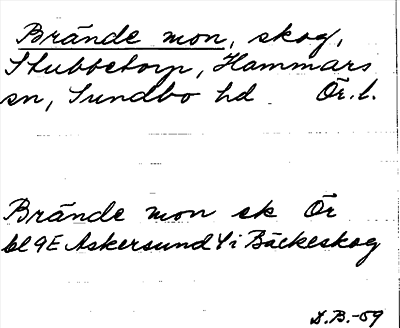 Brände mon, skog,
Stubbetorp, Hammars
sn, Sundbo hd Ör. l.
Brände mon sk Ör
bl 9E Askersund 4i Bäckeskog
D.B.-59